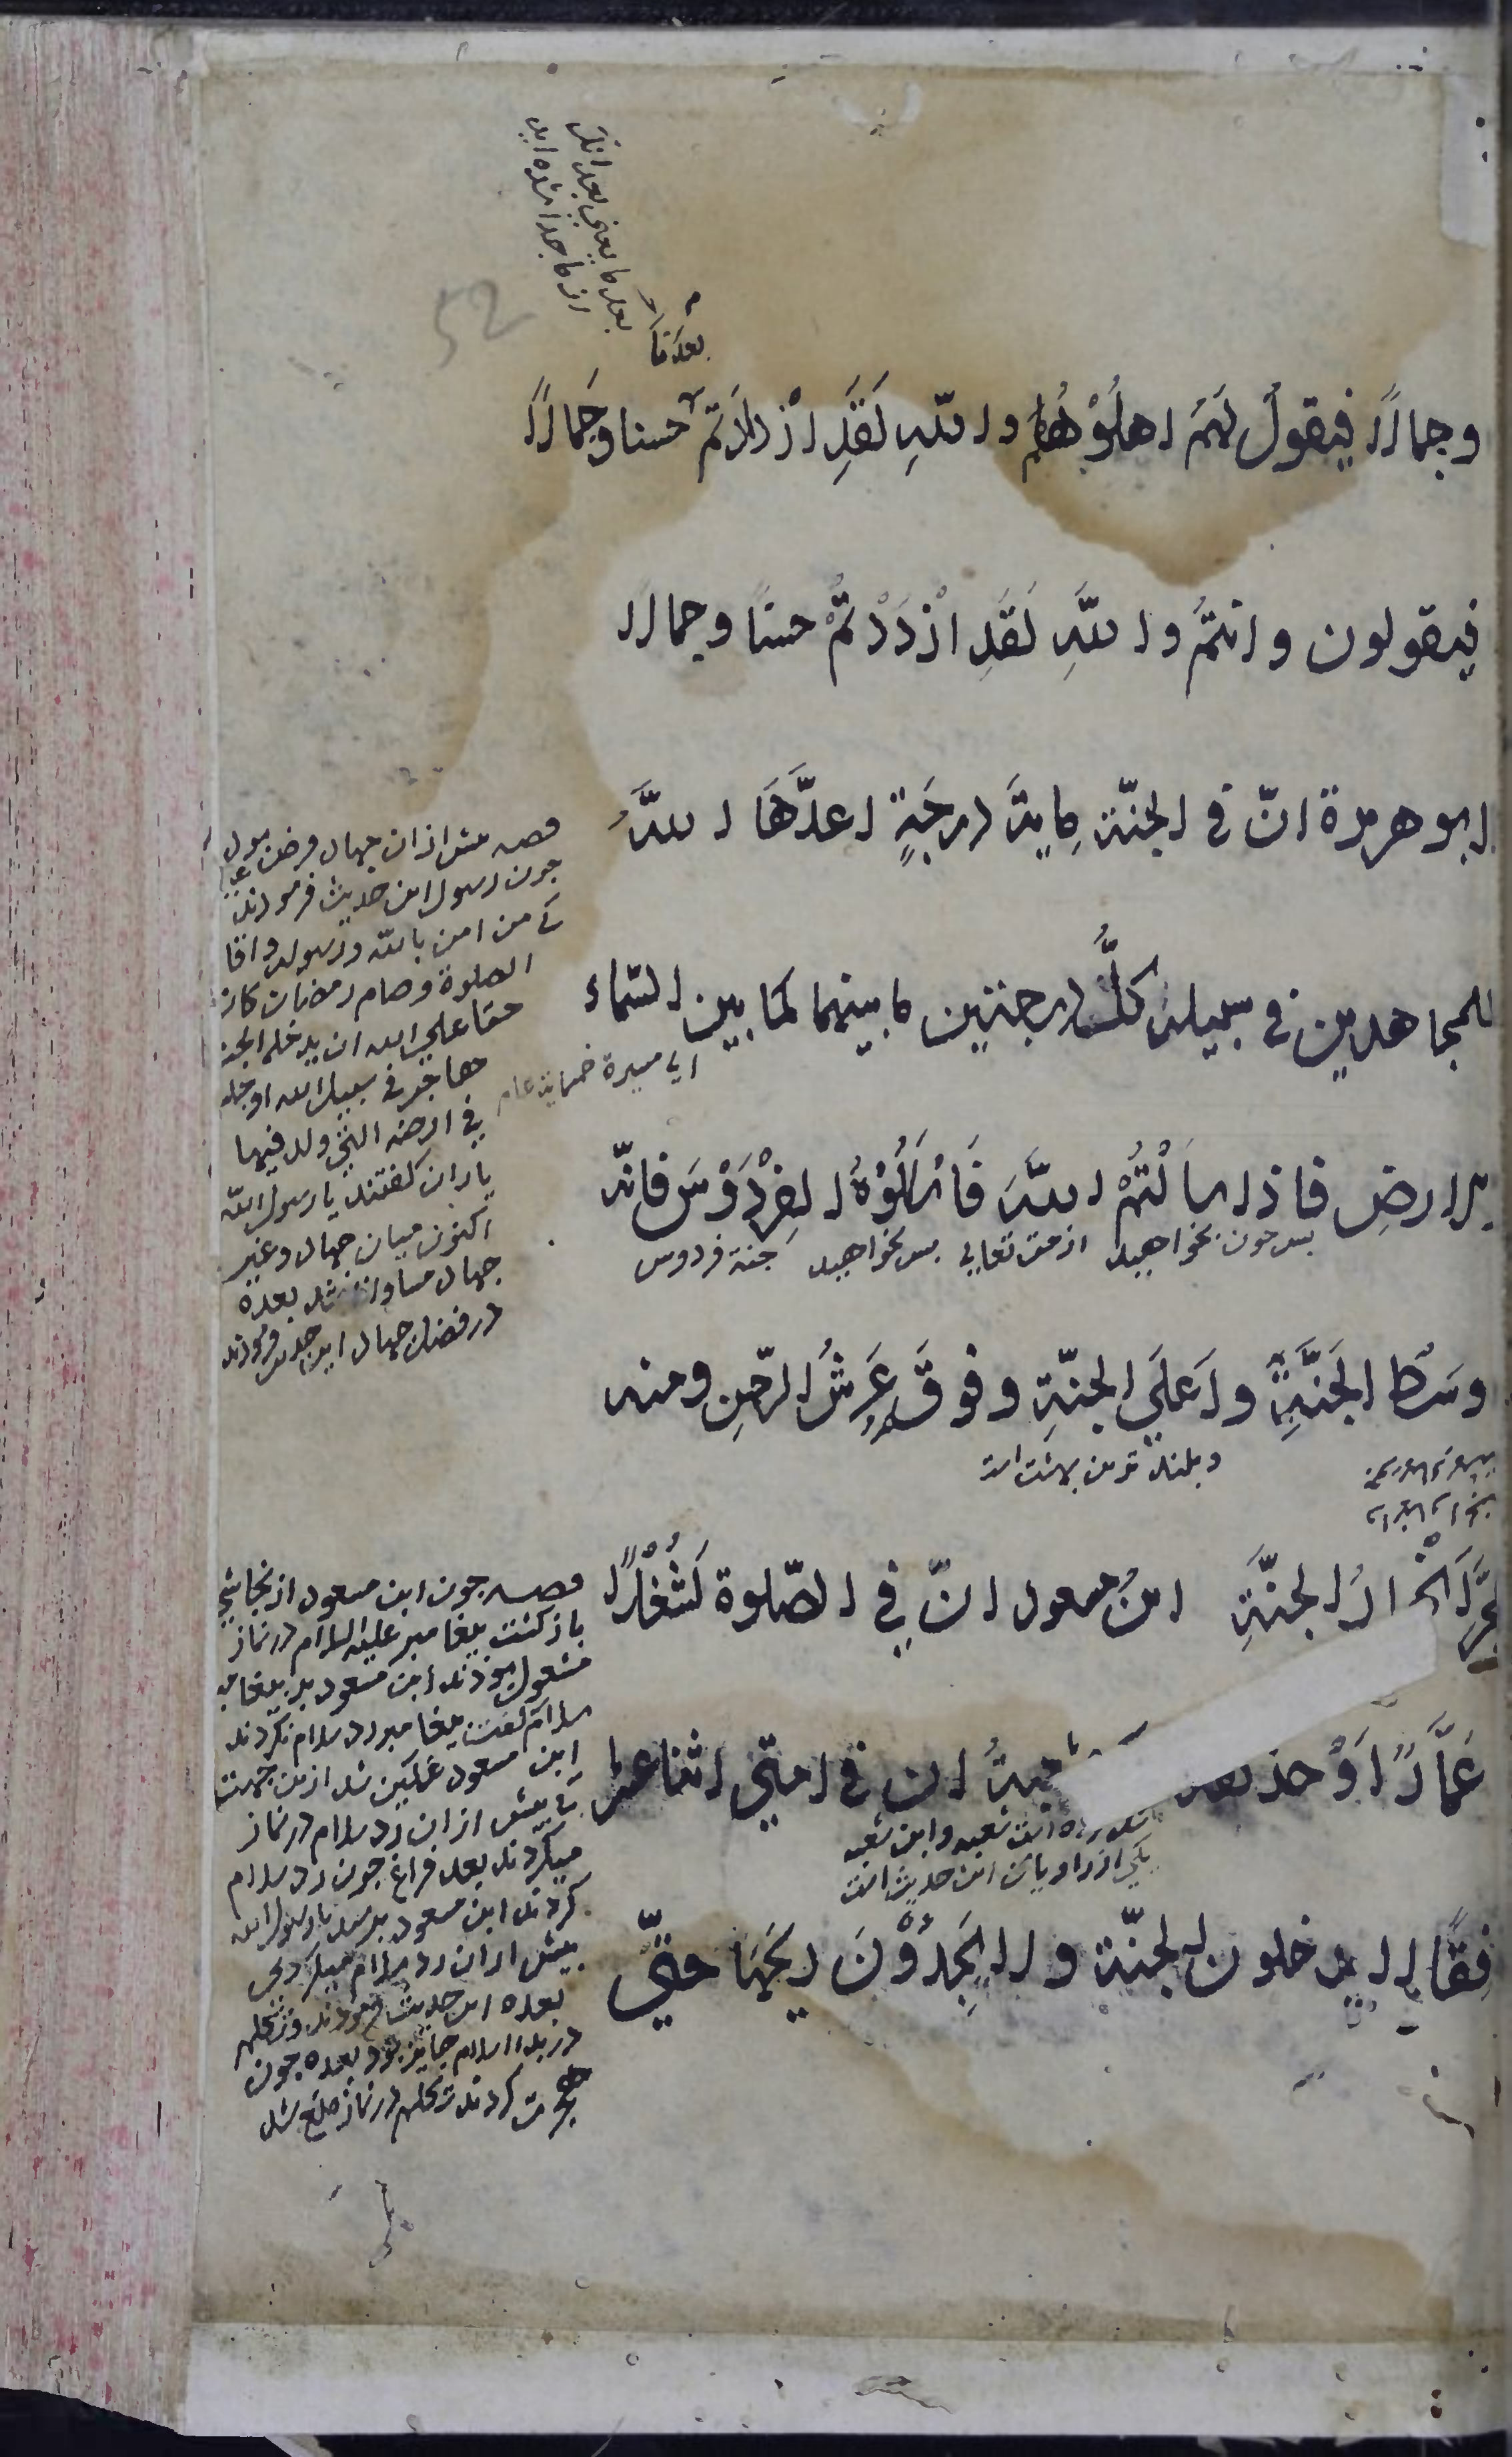 بعدنا
بعد ما یعنی بعد انک
از ما جدا شده اید
52
وجمالا فيقولُ لهم اهلُوْهُم والله لَقَدِ ازْدَدْتُم حسنا وجَمالاً
فيقولون وانتمُ واللّهِ لَقَدِ ازْدَدْتُمْ حسنًا وجمالا
ابو هريرة انّ في الجنّة مِايةَ درجَةٍ اعدَّهَا اللّهُ
للمجاهدين في سبيله كلُّ درجتين ما بينهما كما بين السّماء
اي مسيرة خمسماية عام
والارضِ فاذا سالتُمُ اللّهَ فَاسْالُوْهُ الفِرْدَوْسَ فانّه
پس چون بخواهيد از حق تعالي پس بخواهيد جنة فردوس
وسَط الجَنَّةِ واَعلَي الجنّةِ وفوقَه عَرشُ الرّحمنِ ومنه
وبلند ترين بهشت است
تفجَّرُ انْهارُ الجنَّةِ ابنُ مسعود انّ في الصّلوة لَشُغْلاً
عَمَّارٌ اَوْ حذيفة شعبةُ ان في امتي اثنا عشر
شعبه وابن شعبه
يكي از راويان اين حديث است
مُنافِقًا لا يدخلون الجنّة ولا يَجِدُوْنَ ريحَهَا حتّي
قصه پيش از ان جهاد فرض بود
چون رسول اين حديث فرمودند
كه من امن بالله ورسوله واقام
الصلوة وصام رمضان كان
حقا علي الله ان يدخله الجنة
هاجر في سبيل الله او جلس
في ارضه التي ولد فيها
ياران گفتند يا رسول الله
اكنون ميان جهاد وغير
جهاد مساوات شد بعده
در فضل جهاد اين حديث فرمودند
قصه چون ابن مسعود از نجاشي
باز گشت پيغامبر عليه السلام در نماز
مشغول بودند ابن مسعود بر پيغامبر
سلام گفت پيغامبر رد سلام نكردند
ابن مسعود غمگين شد ازين جهت
كه پيش از ان رد سلام در نماز
ميكردند بعد فراغ چون رد سلام
كردند ابن مسعود پرسيد يا رسول الله
پيش از ان رد سلام ميكردي
بعده اين حديث فرمودند وتكلم
در بدا اسلام جايز بود بعده چون
هجرت كردند تكلم در نماز منع شد